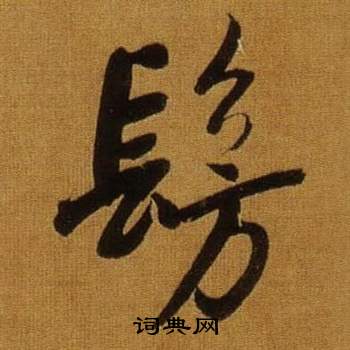 髣
词典网